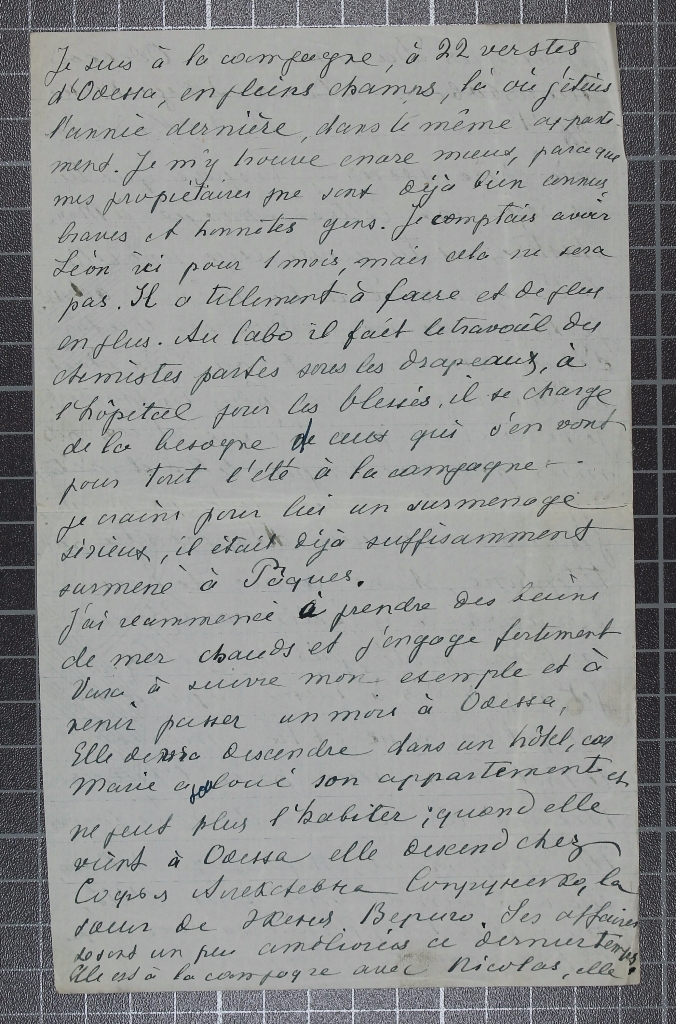 Je suis à la campagne, à 22 verstes
d'Odessa, en pleins champs, là où j'étais
l'année dernière, dans le même apparte-
ment. Je m'y trouve encore mieux, parce que
mes propriétaires me sont déjà bien connus,
braves et honnêtes gens. Je comptais avoir
Léon ici pour 1 mois, mais cela ne sera
pas. Il a tellement à faire et de plus
en plus. Au labo il fait le travail des
chimistes partis sous les drapeaux, à
l'hôpital pour les blessés, il se charge
de la besogne de ceux qui s'en vont
pour tout l'été à la campagne -
je crains pour lui un surmenage
sérieux, il était déjà suffisamment
surmené à Pâques.
J'ai recommencé à prendre des bains
de mer chauds et j'engage fortement
à suivre mon exemple et à
venir passer un mois à Odessa,
Elle devra descendre dans un hôtel, car
Marie a loué son appartement et
ne peut plus l'habiter; quand elle
vient à Odessa elle descend chez
Софья Алексеевна Супруненко, la
sœur de Женя Вериго. Ses affaires
se sont un peu améliorées ce dernier temps.
Elle est à la campagne avec Nicolas, elle